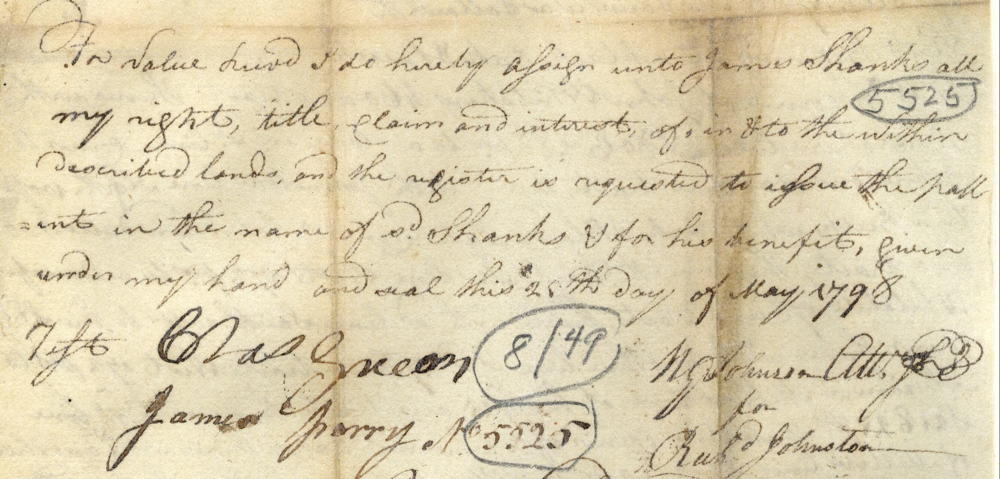 For Value Recd I do hereby assign unto James Shanks all
5525
my right, title, claim and interest, of, in & to the within
described lands, and the register is requested to issue the patt
=ents in the name of sd. Shanks & for his benefit, given
under my hand and seal this 25th day of May 1798
Test Chas Green 8/49 Johnson Att.
James Parry No 5525 for
Richd Johnston